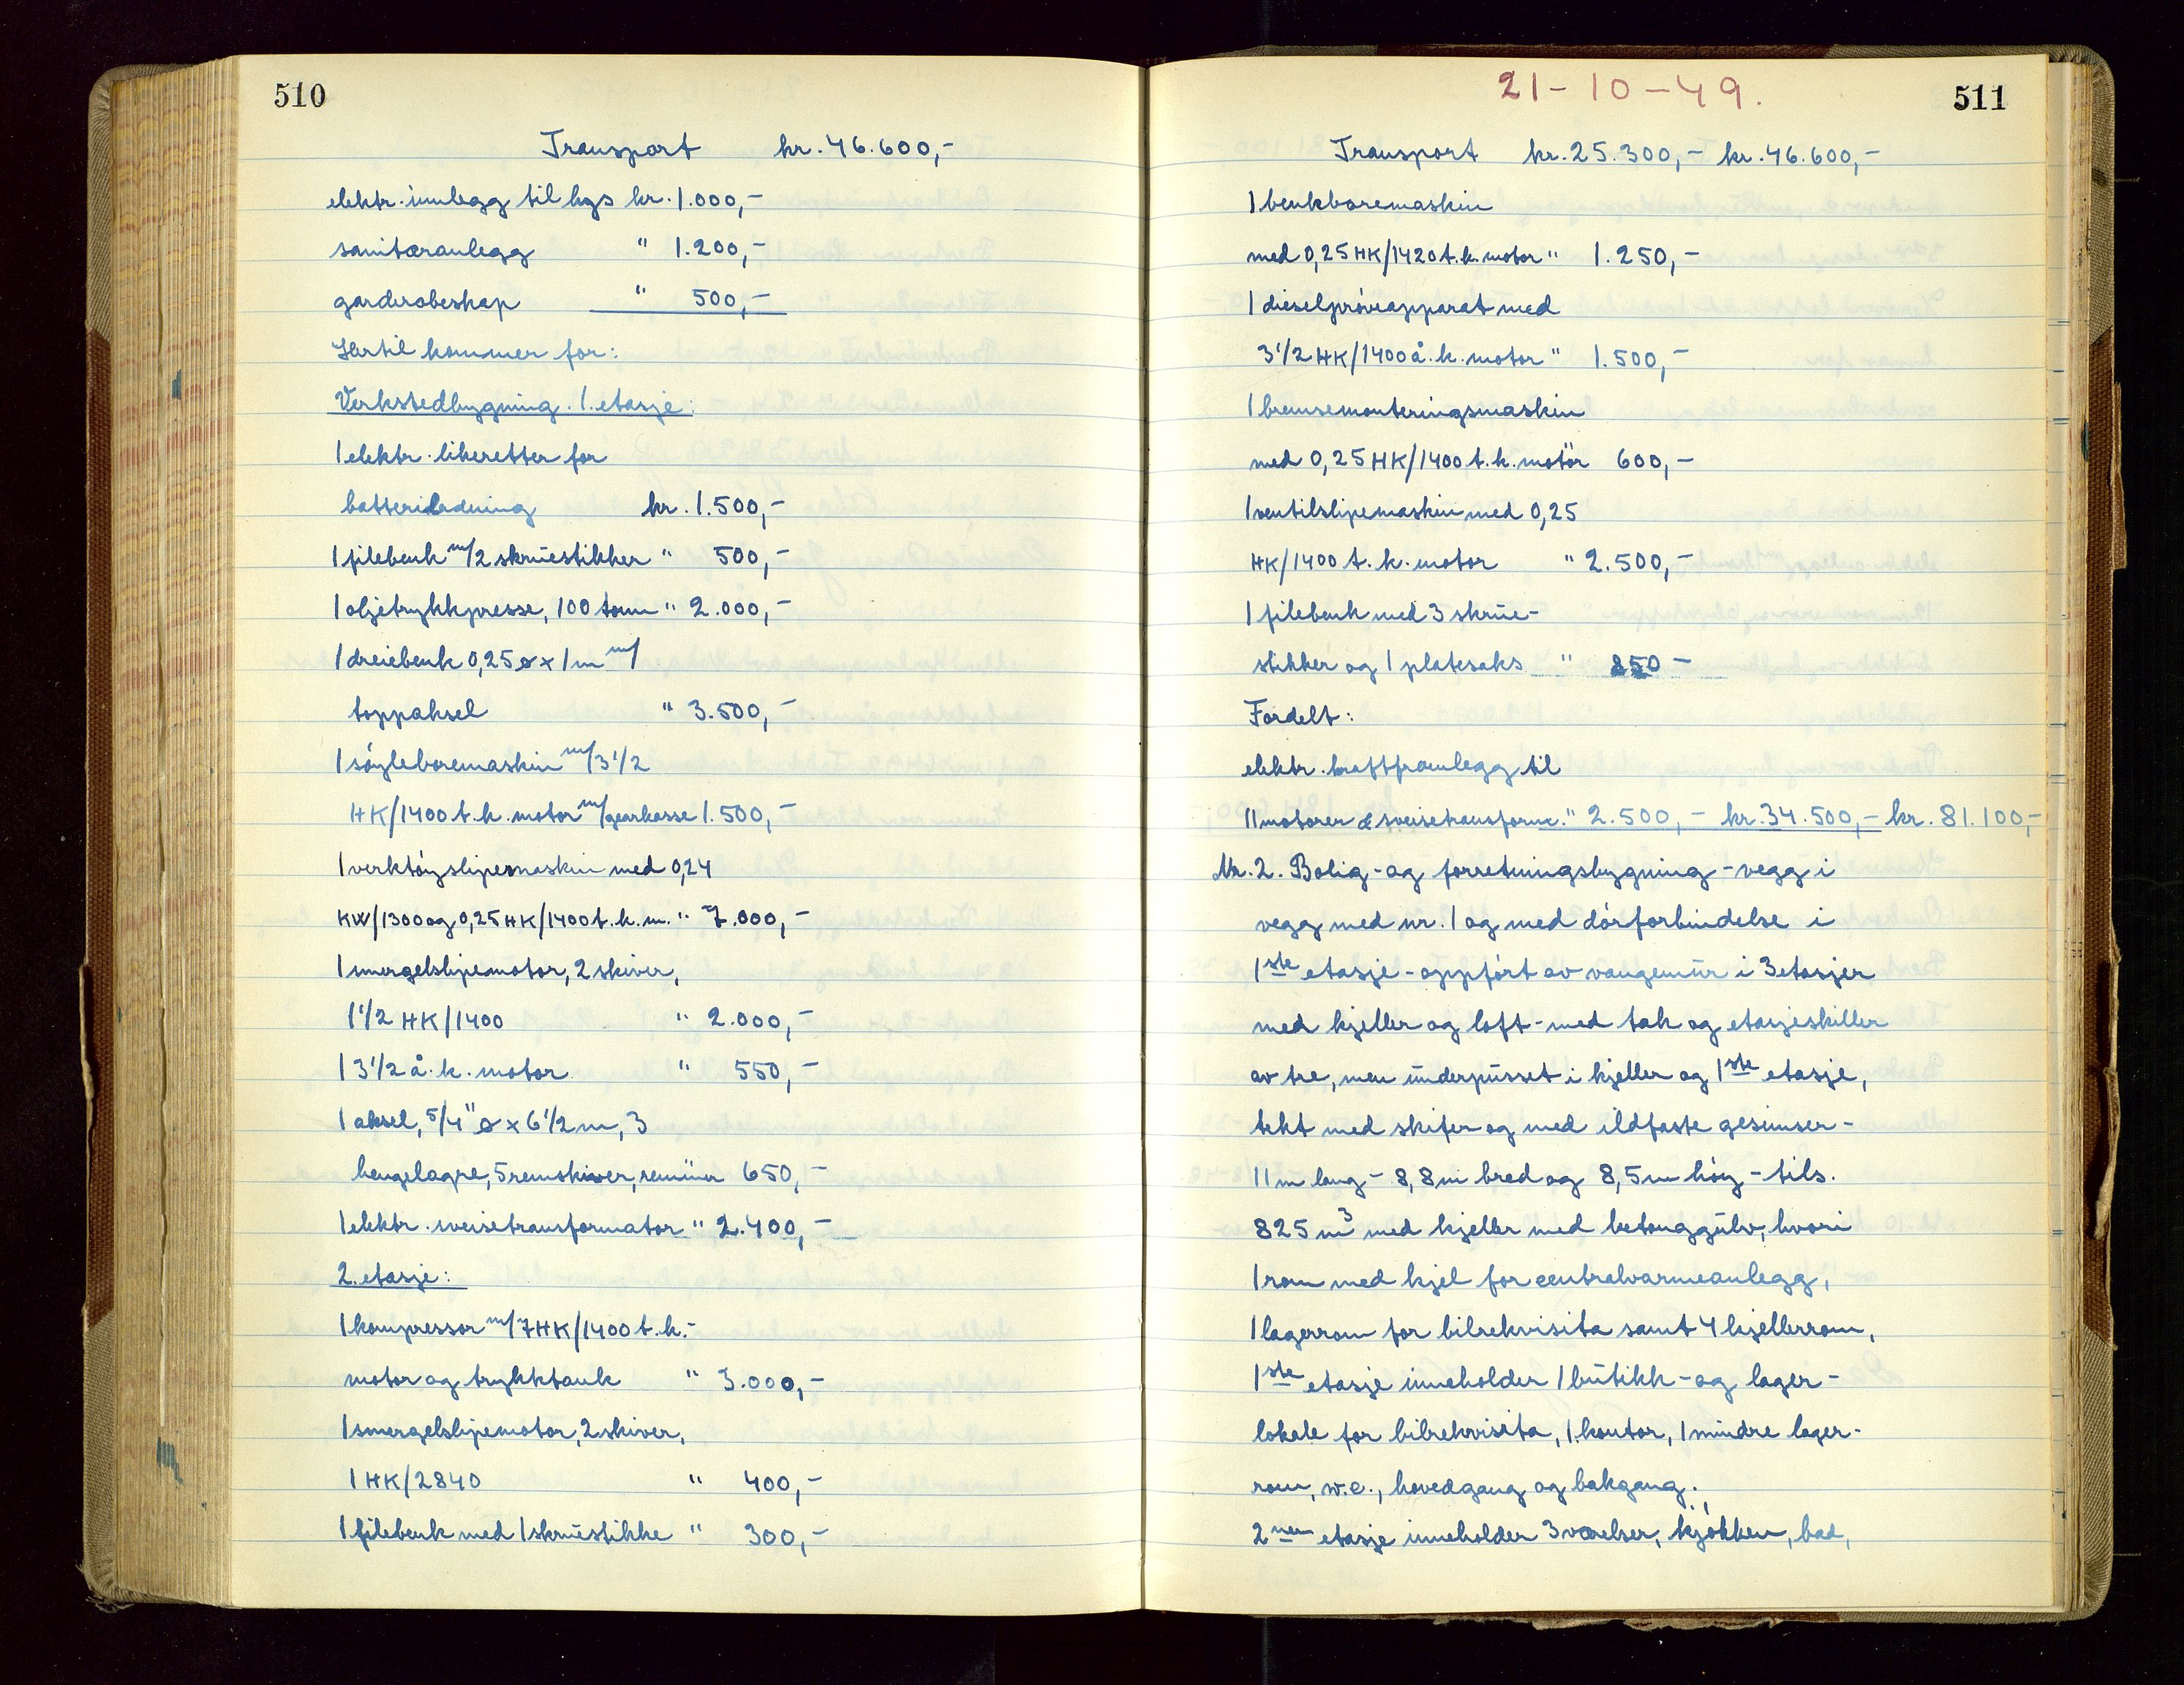 510
Transport kr. 46.600,-
elektr. innlegg til lys kr. 1.000,-
sanitæranlegg " 1.200,-
garderobeskap " 500,-
Hertil kommer for:
Verkstedbygning. 1. etasje:
1 elektr. likeretter for
batteriladning kr. 1.500,-
1 filebenk m/2 skrūestikker " 500,-
1 oljetrykkpresse, 100 tonn " 2.000,-
1 dreiebenk 0,25 ø x 1 m m/
toppaksel " 3.500,-
1 söyleboremaskin m/3 1/2
HK/1400 t.k. motor m/gearkasse 1.500,-
1 verktöyslipemaskin med 0,24
KW/1300 og 0,25 HK/1400 t.k.m. " 7.000,-
1 smergelslipemotor, 2 skiver,
1 1/2 HK/1400 " 2.000,-
1 3 1/2 å.k. motor " 550,-
1 aksel, 5/4" ø x 6 1/2 m, 3
hengelagre, 5 remskiver, remmer 650,-
1 elektr. sveisetransformator " 2.400,-
2. etasje:
1 kompressor m/7 HK/1400 t.k.-
motor og trykktank " 3.000,-
1 smergelslipemotor, 2 skiver,
1 HK/2840 " 400,-
1 filebenk med 1 skrūestikke " 300,-
21-10-49.
511
Transport kr. 25.300,- kr. 46.600,-
1 benkboremaskin
med 0,25 HK/1420 t.k. motor " 1.250,-
1 dieselpröveapparat med
3 1/2 HK/1400 å.k. motor " 1.500,-
1 bremsemonteringsmaskin
med 0,25 HK/1400 t.k. motor " 600,-
1 ventilslipemaskin med 0,25
HK/1400 t.k. motor " 2.500,-
1 filebenk med 3 skrūe-
stikker og 1 platesaks " 850 -
Fordelt:
elektr. kraftframlegg til
11 motorer & sveisetransform. " 2.500,- kr. 34.500,- kr. 81.100,-
Nr. 2. Bolig- og forretningsbygning - vegg i
vegg med nr. 1 og med dörforbindelse i
1ste etasje - oppfört av vangemūr i 3 etasjer
med kjeller og loft - med tak og etasjeskiller
av tre, men ūnderpūsset i kjeller og 1ste etasje,
tekt med skifer og med ildfaste gesimser -
11 m lang - 8,8 m bred og 8,5 m höy - tils.
825 m3 med kjeller med betonggūlv, hvori
1 rom med kjel for centralvarmeanlegg,
1 lagerrom for bilrekvisita samt 4 kjellerrom,
1ste etasje inneholder 1 būtikk- og lager-
lokale for bilrekvisita, 1 kontor, 1 mindre lager-
rom, w.c., hovedgang og bakgang.,
2nen etasje inneholder 3 værelser, kjökken, bad,